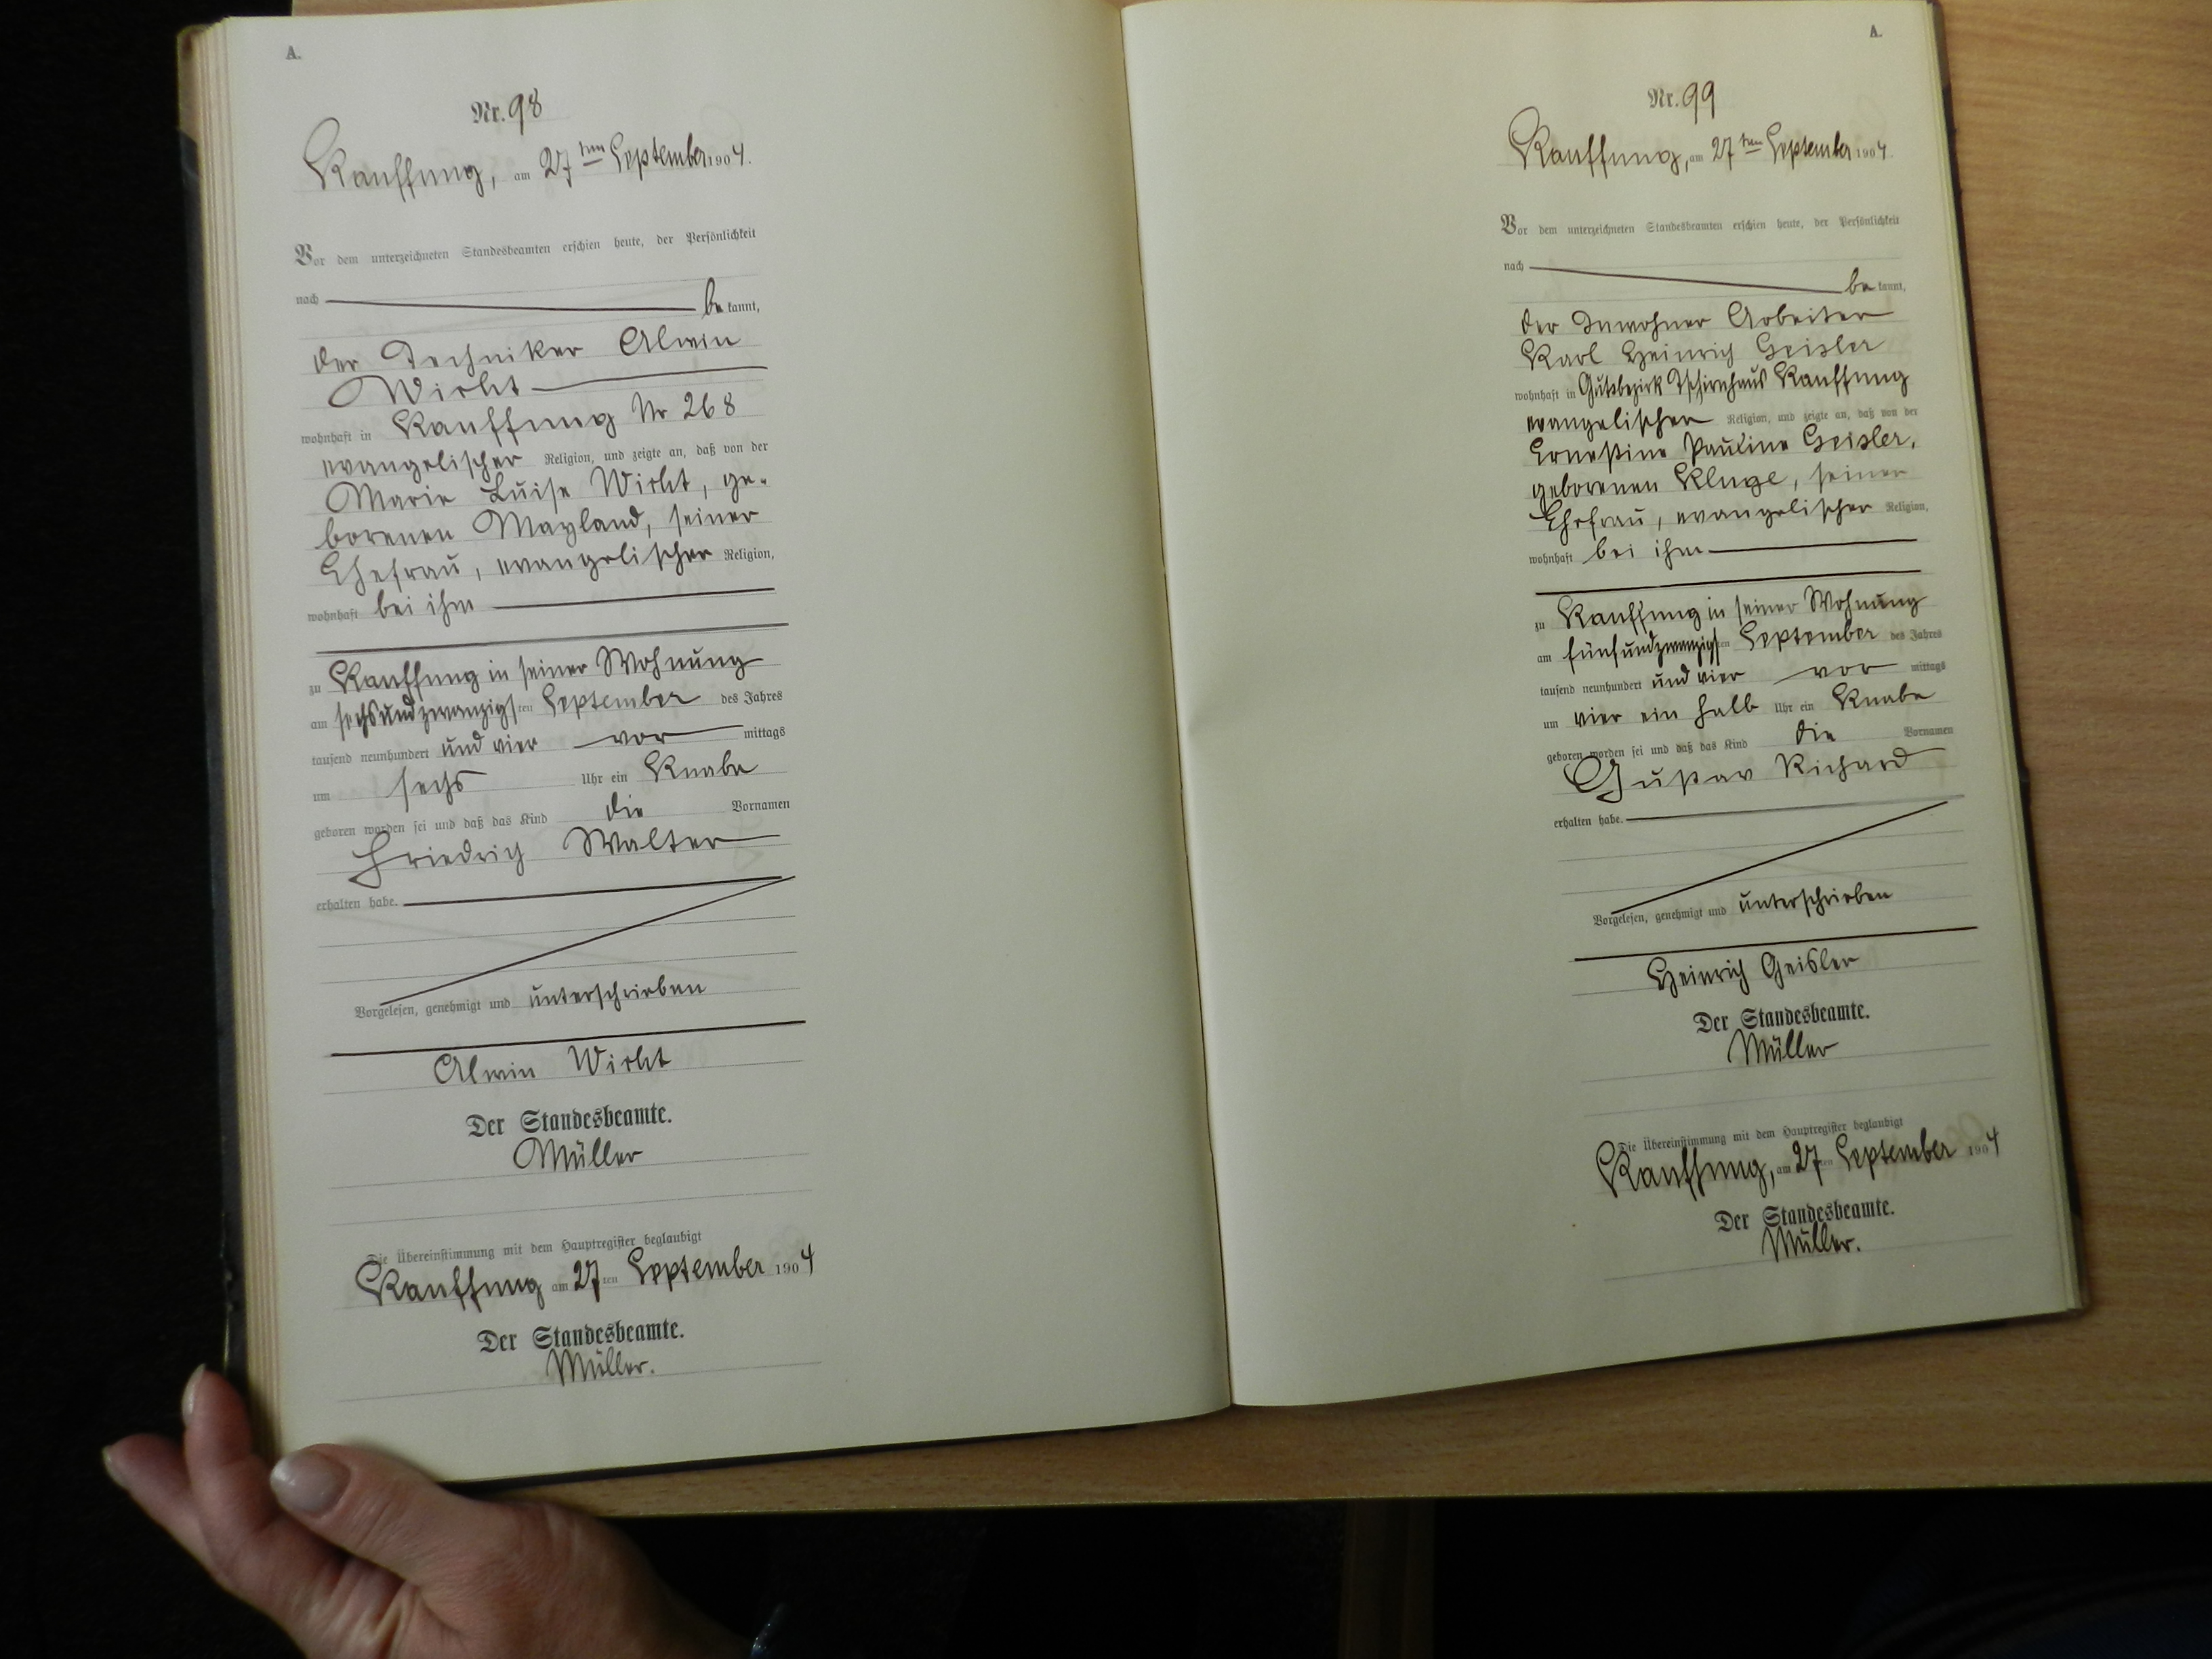 A.
Nr. 98
Kauffung, am 27ten September 1904.
Vor dem unterzeichneten Standesbeamten erschien heute, der Persönlichkeit
nach be kannt,
der Techniker Alwin
Wirht
wohnhaft in Kauffung Nr 268
evangelischer Religion, und zeigte an, daß von der
Marie Luise Wirht, ge-
borenen Mayland, seiner
Ehefrau, evangelischer Religion,
wohnhaft bei ihm
zu Kauffung in seiner Wohnung
am sechsundzwanzigsten September des Jahres
tausend neunhundert und vier vor mittags
um sechs Uhr ein Knabe
geboren worden sei und daß das Kind die Vornamen
Friedrich Walter
erhalten habe.
Vorgelesen, genehmigt und unterschrieben
Alwin Wirht
Der Standesbeamte.
Müller
Die Übereinstimmung mit dem Hauptregister beglaubigt
Kauffung am 27ten September 1904
Der Standesbeamte.
Müller.
A.
Nr. 99
Kauffung, am 27ten September 1904.
Vor dem unterzeichneten Standesbeamten erschien heute, der Persönlichkeit
nach be kannt,
der Inwohner Arbeiter
Karl Heinrich Geisler
wohnhaft in Gutsbezirk Tschirnhaus Kauffung
evangelischer Religion, und zeigte an, daß von der
Ernestine Pauline Geisler,
geborenen Kluge, seiner
Ehefrau, evangelischer Religion,
wohnhaft bei ihm
zu Kauffung in seiner Wohnung
am fünfundzwanzigsten September des Jahres
tausend neunhundert und vier vor mittags
um vier ein halb Uhr ein Knabe
geboren worden sei und daß das Kind die Vornamen
Gustav Richard
erhalten habe.
Vorgelesen, genehmigt und unterschrieben
Heinrich Geisler
Der Standesbeamte.
Müller
Die Übereinstimmung mit dem Hauptregister beglaubigt
Kauffung, am 27ten September 1904
Der Standesbeamte.
Müller.